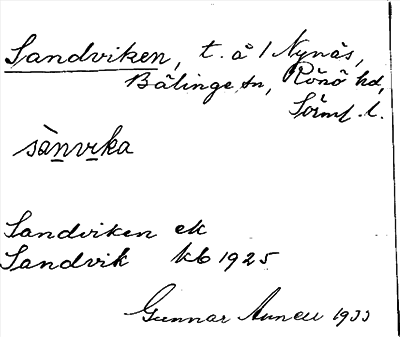 Sandviken, t. å 1 Nynäs,
Bälinge sn, Rönö hd,
Södml. l.
sànvika
Sandviken ek
Sandvik kb 1925
Gunnar 1933